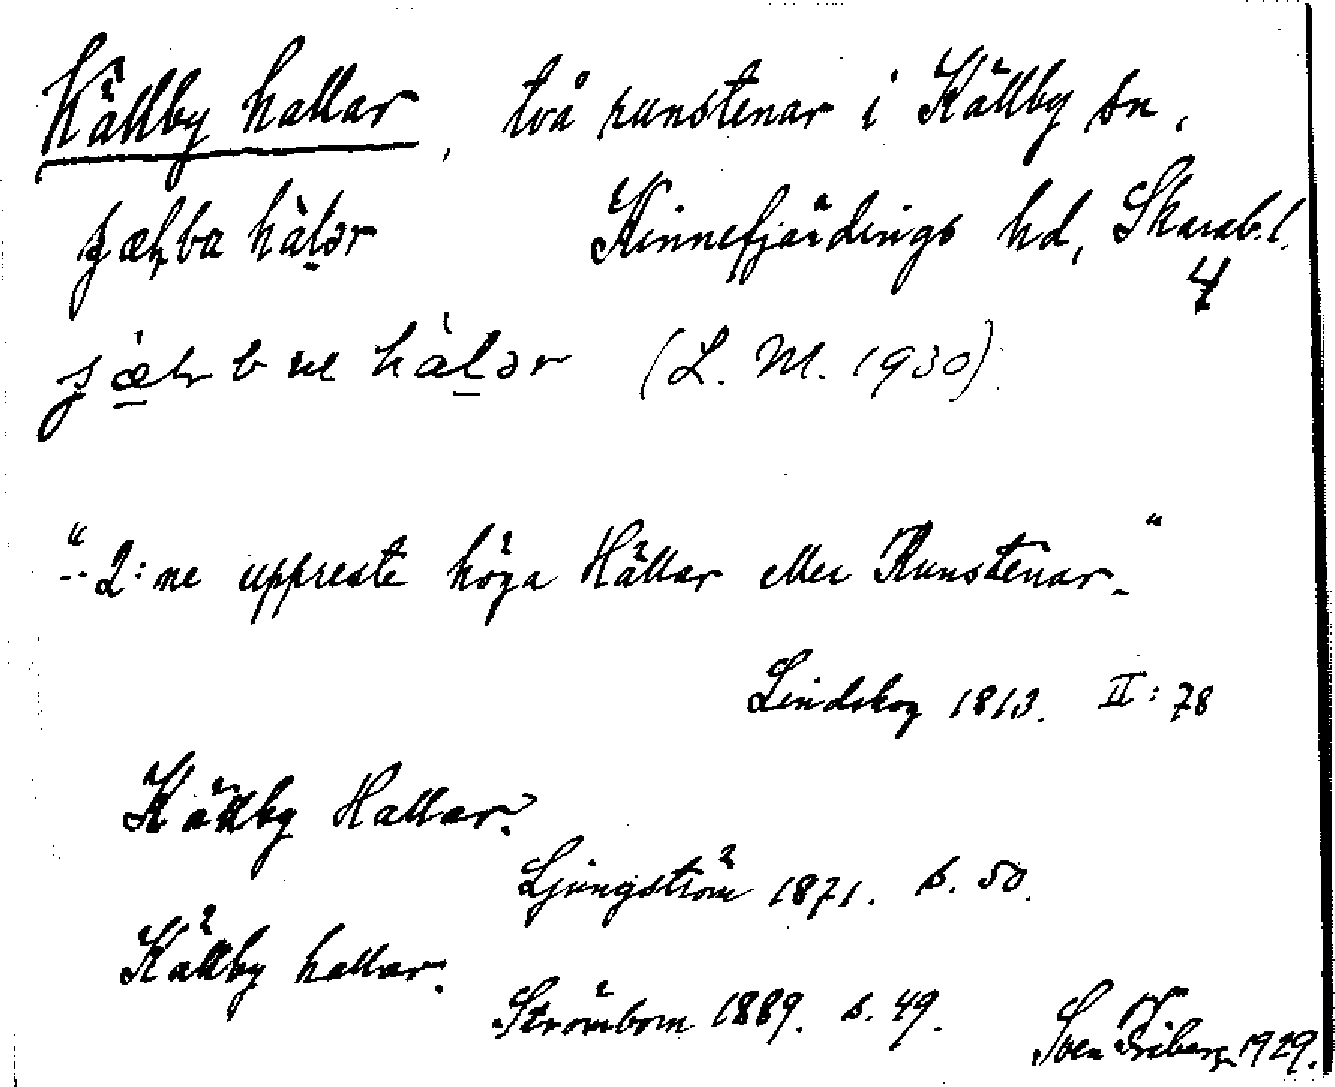 Källby hallar, två runstenar i Källby sn,
hàlər Kinnefjärdings hd, Skarab.l.
4
hàlər (L. M. 1930).
"-- 2:ne uppreste höga Hällar eller Runstenar.."
Lindskog 1813. II: 78
Källby Hallar.
Ljungström 1871. s. 50.
Källby hallar.
Strömbom 1889. s. 49.
Sven Friberg 1929.